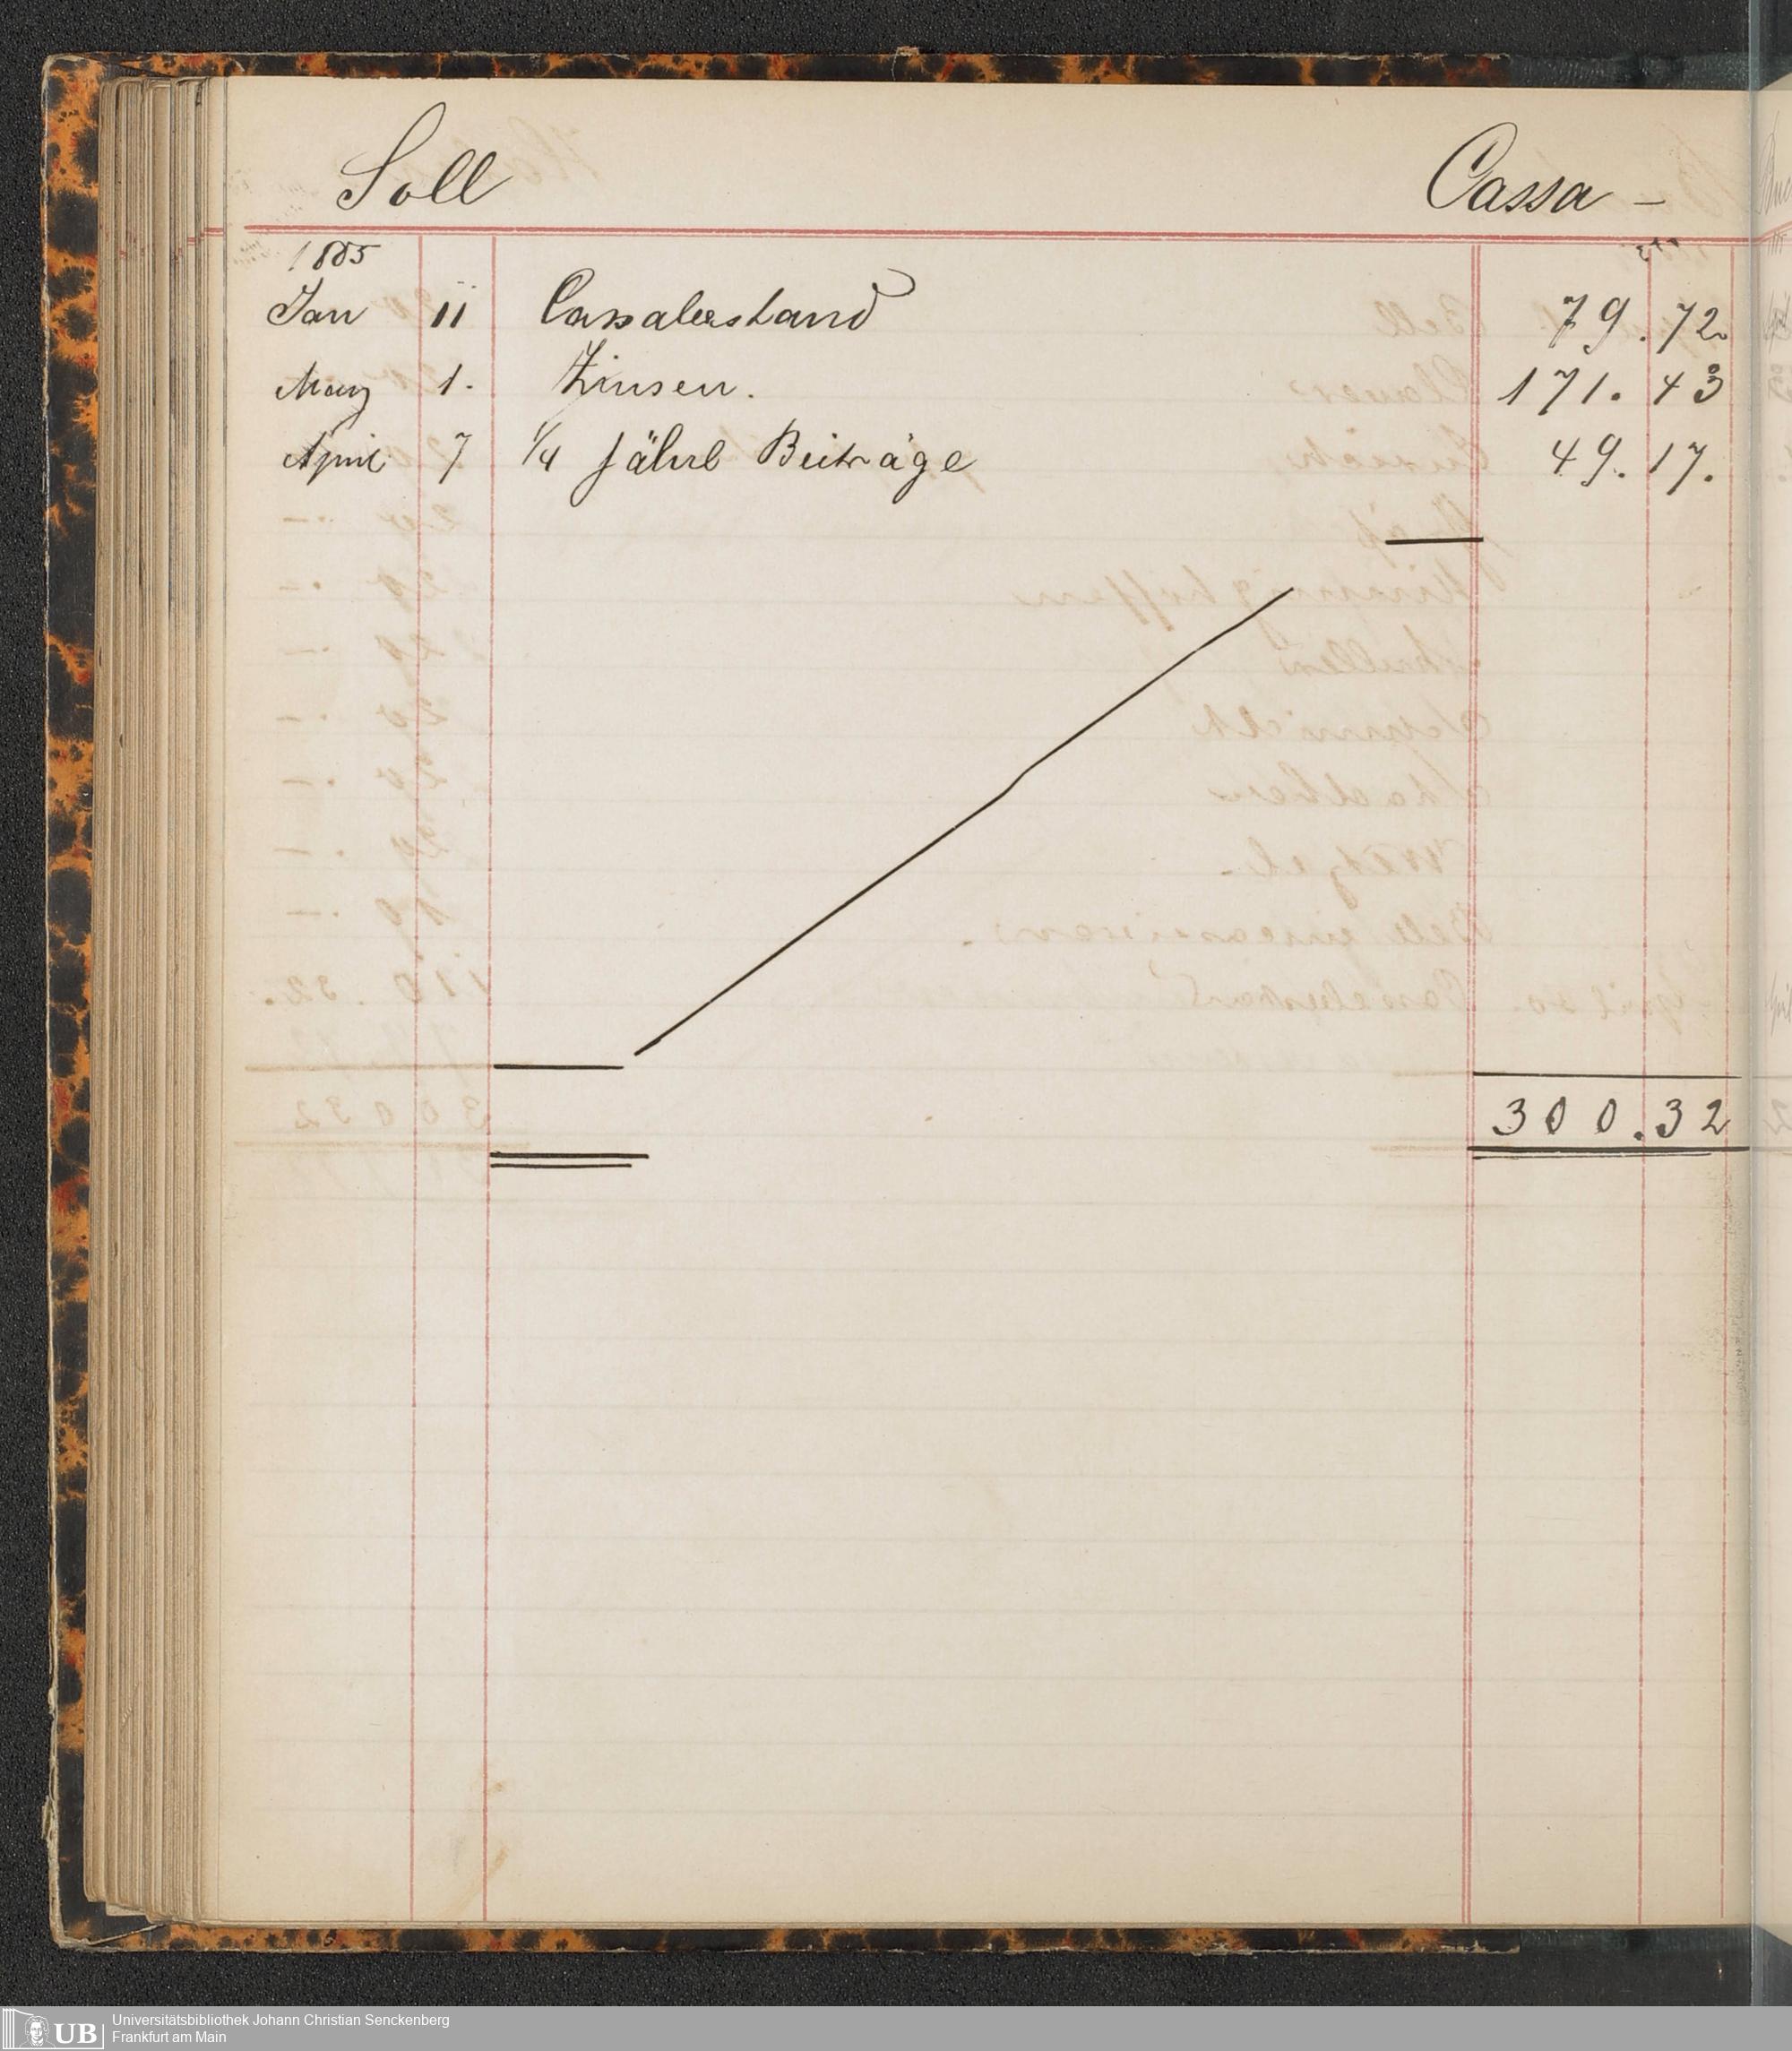 Soll Cassa –
1885
Jan 11 Cassabestand 79.72
März 1. Zinsen. 171.43
April 7 1/4 Jährl Beiträge 49.17.
300.32
UB Universitätsbibliothek Johann Christian Senckenberg
Frankfurt am Main